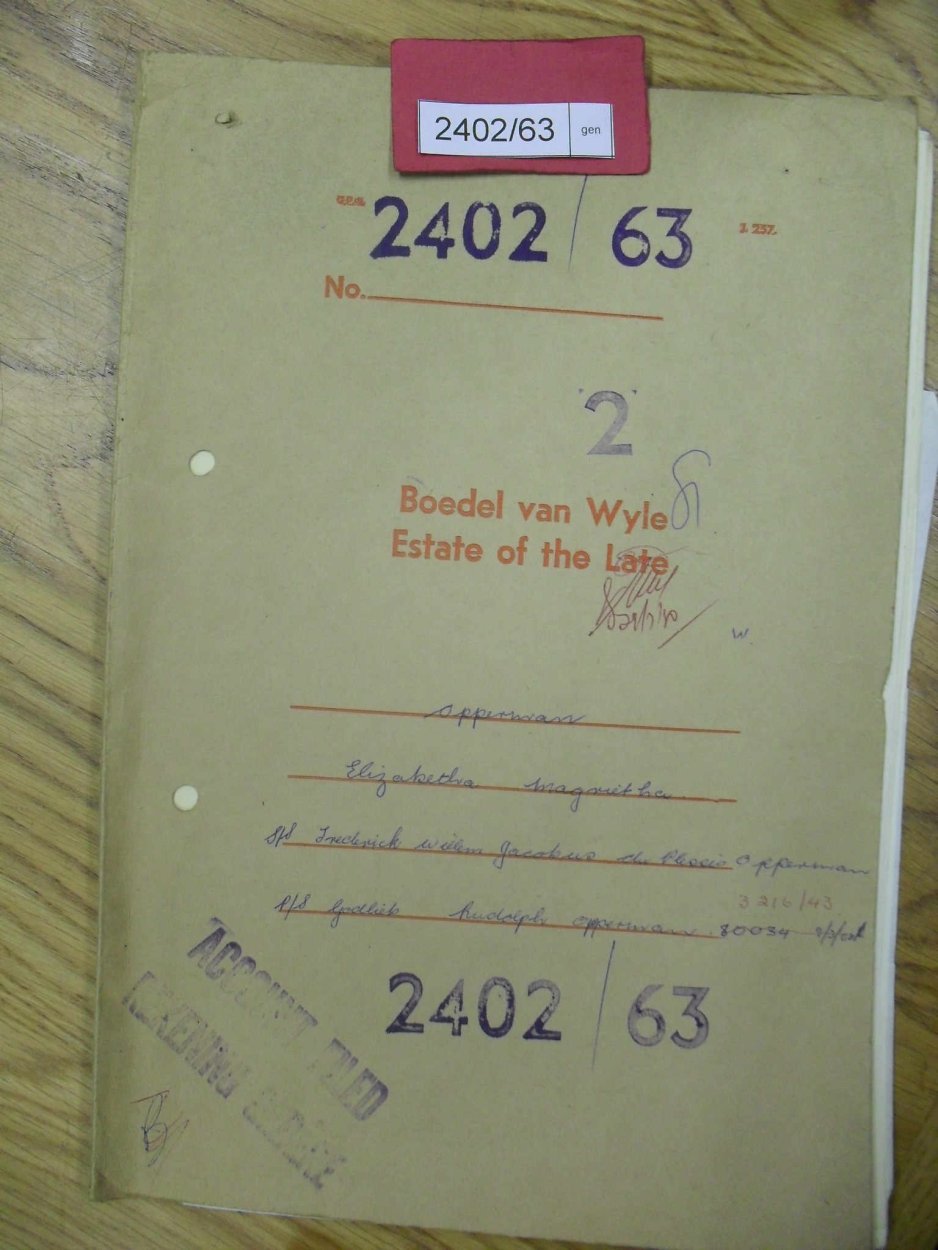 2402/63 gen
2402 / 63
J. 237.
No.
2
Boedel van Wyle
Estate of the Late
W.
Opperman
Elizabetha Magrietha
s/s Frederick Willem Jacobus du Plessis Opperman
3216/43
p/s Godlieb Rudolph Opperman 30034
2402 / 63
ACCOUNT FILED
REKENING